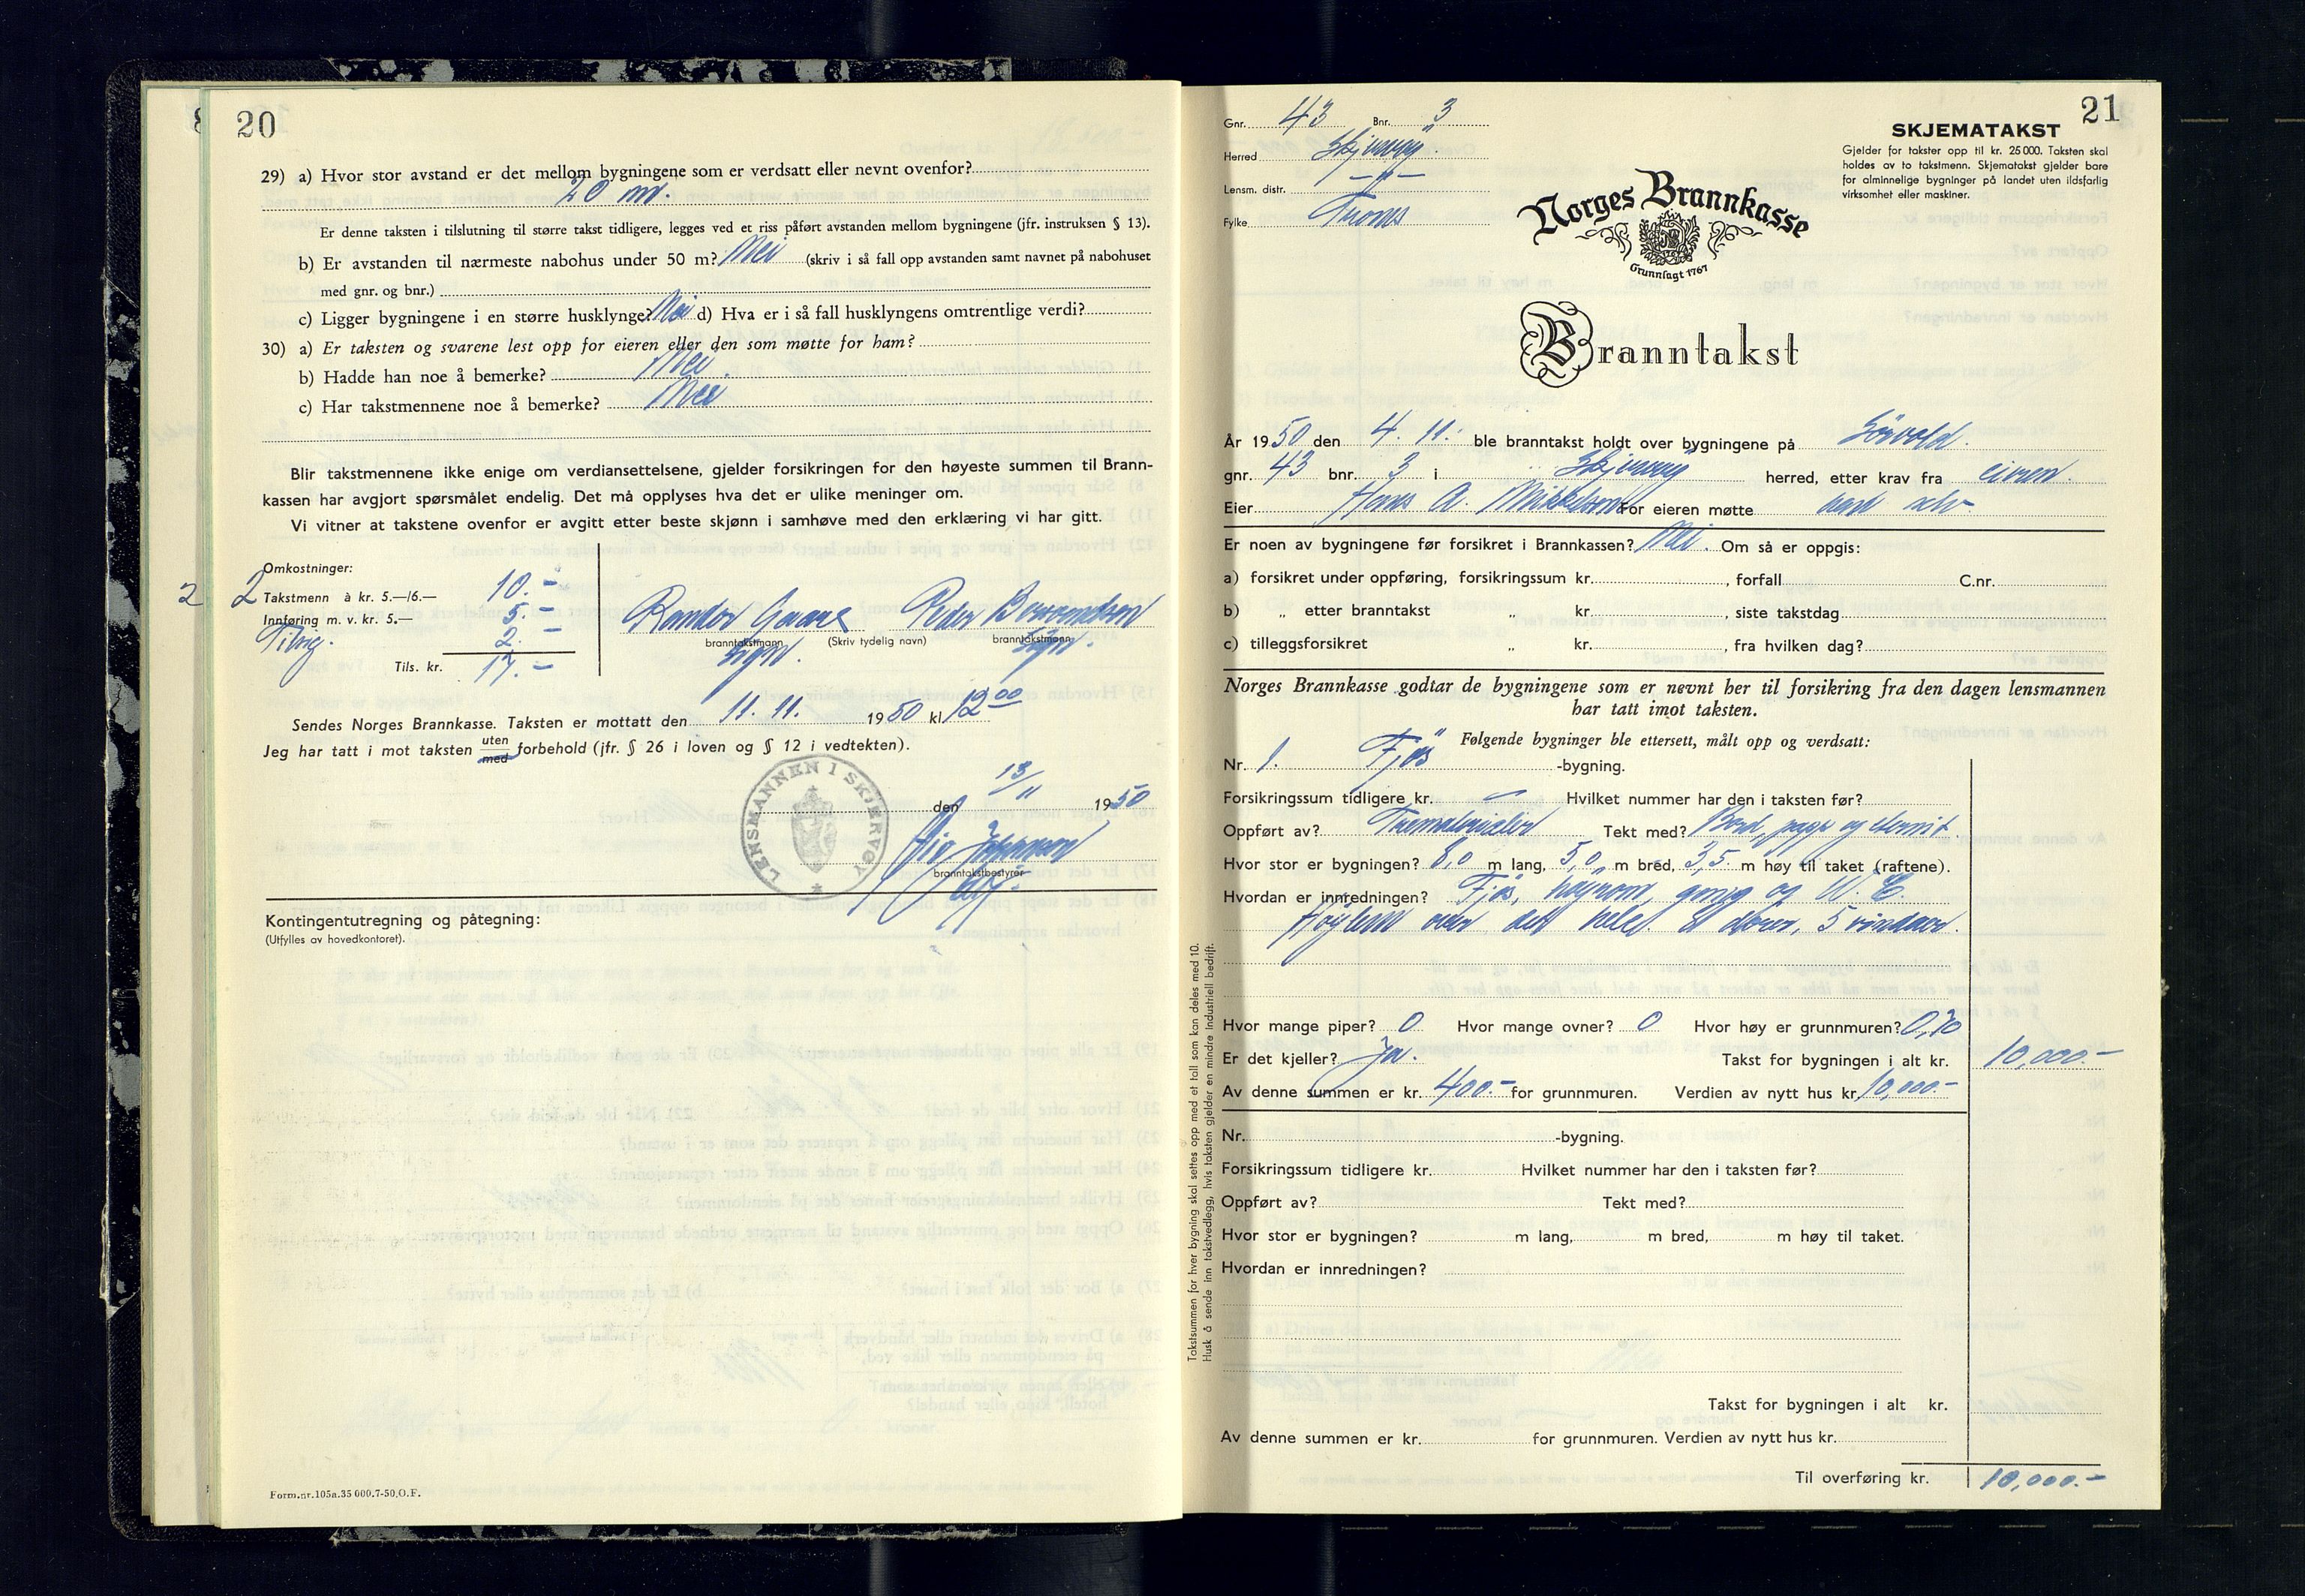 20
29) a) Hvor stor avstand er det mellom bygningene som er verdsatt eller nevnt ovenfor?
20 m.
Er denne taksten i tilslutning til større takst tidligere, legges ved et riss påført avstanden mellom bygningene (jfr. instruksen § 13).
b) Er avstanden til nærmeste nabohus under 50 m? Nei (skriv i så fall opp avstanden samt navnet på nabohuset
med gnr. og bnr.)
c) Ligger bygningene i en større husklynge? Nei d) Hva er i så fall husklyngens omtrentlige verdi?
30) a) Er taksten og svarene lest opp for eieren eller den som møtte for ham?
b) Hadde han noe å bemerke? Nei
c) Har takstmennene noe å bemerke? Nei
Blir takstmennene ikke enige om verdiansettelsene, gjelder forsikringen for den høyeste summen til Brann-
kassen har avgjort spørsmålet endelig. Det må opplyses hva det er ulike meninger om.
Vi vitner at takstene ovenfor er avgitt etter beste skjønn i samhøve med den erklæring vi har gitt.
Omkostninger:
2 2 Takstmenn à kr. 5.—/6.— 10.-
Innføring m. v. kr. 5.— 5.-
Tilsig. 2.-
Tils. kr. 17.-
Peder
branntakstmann (Skriv tydelig navn) branntakstmann
sign. sign.
Sendes Norges Brannkasse. Taksten er mottatt den 11. 11. 1950 kl 12 00
Jeg har tatt i mot taksten uten med forbehold (jfr. § 26 i loven og § 12 i vedtekten).
LENSMANNEN I SKJERVØY
den 13/11 1950
branntakstbestyrer
Kontingentutregning og påtegning:
(Utfylles av hovedkontoret).
Form.nr.105a.35 000.7-50.O.F.
21
Gnr. 43 Bnr. 3
Herred Skjervøy
Lensm. distr. -"-
Fylke Troms
SKJEMATAKST
Gjelder for takster opp til kr. 25 000. Taksten skal
holdes av to takstmenn. Skjematakst gjelder bare
for alminnelige bygninger på landet uten ildsfarlig
virksomhet eller maskiner.
Norges Brannkasse
Grunnlagt 1767
Branntakst
År 1950 den 4. 11. ble branntakst holdt over bygningene på Sörvold.
gnr. 43 bnr. 3 i Skjervöy herred, etter krav fra eieren.
Eier Hans A. Mikkelsen For eieren møtte han selv
Er noen av bygningene før forsikret i Brannkassen? Nei. Om så er oppgis:
a) forsikret under oppføring, forsikringssum kr. , forfall C.nr.
b) „ etter branntakst „ kr. , siste takstdag
c) tilleggsforsikret „ kr. , fra hvilken dag?
Norges Brannkasse godtar de bygningene som er nevnt her til forsikring fra den dagen lensmannen
har tatt imot taksten.
Følgende bygninger ble ettersett, målt opp og verdsatt:
Nr. 1. Fjös -bygning.
Forsikringssum tidligere kr. - Hvilket nummer har den i taksten før?
Oppført av? Trematerialer Tekt med? Bord, papp og eternit.
Hvor stor er bygningen? 8,0 m lang, 5,0 m bred, 3,5 m høy til taket (raftene).
Hvordan er innredningen? Fjös, höyrom, gang og W. C.
Höylem over det hele. 2 dörer, 5 vinduer.
Hvor mange piper? 0 Hvor mange ovner? 0 Hvor høy er grunnmuren? 0,70
Er det kjeller? Ja. Takst for bygningen i alt kr. 10,000.-
Av denne summen er kr. 400.- for grunnmuren. Verdien av nytt hus kr. 10,000.-
Nr. -bygning.
Forsikringssum tidligere kr. Hvilket nummer har den i taksten før?
Oppført av? Tekt med?
Hvor stor er bygningen? m lang, m bred, m høy til taket.
Hvordan er innredningen?
Takst for bygningen i alt kr.
Av denne summen er kr. for grunnmuren. Verdien av nytt hus kr.
Til overføring kr. 10,000.-
Takstsummen for hver bygning skal settes opp med et tall som kan deles med 10.
Husk å sende inn takstvedlegg, hvis taksten gjelder en mindre industriell bedrift.